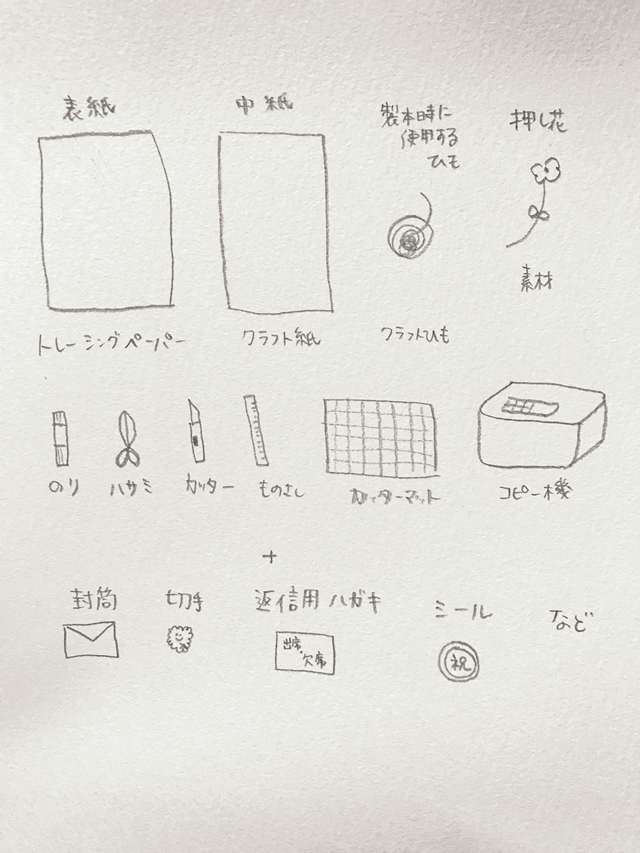 表紙
中紙
製本時に
使用する
ひも
押し花
素材
トレーシングペーパー
クラフト紙
クラフトひも
のり
ハサミ
カッター
ものさし
カッターマット
コピー機
+
封筒
切手
返信用ハガキ
シール
など
出席
欠席
祝